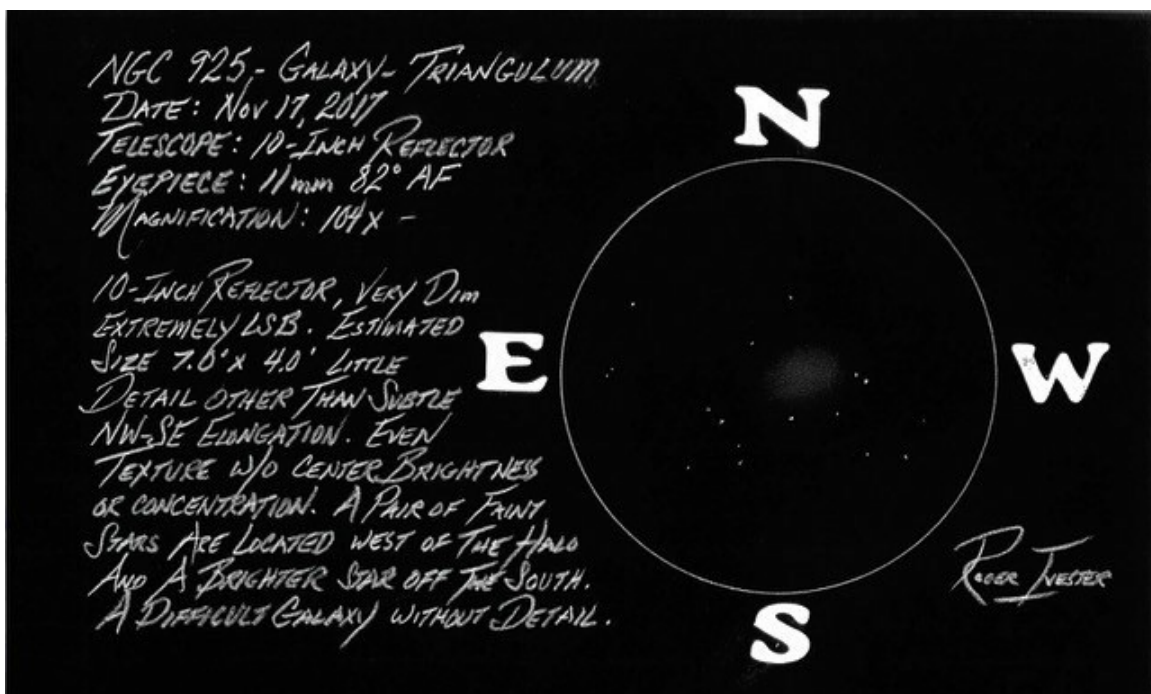 NGC 925 - GALAXY - TRIANGULUM
DATE: NOV 17, 2017
TELESCOPE: 10-INCH REFLECTOR
EYEPIECE: 11mm 82° AF
MAGNIFICATION: 104X -
10-INCH REFLECTOR, VERY DIM
EXTREMELY LSB. ESTIMATED
SIZE 7.0' X 4.0' LITTLE
DETAIL OTHER THAN SUBTLE
NW-SE ELONGATION. EVEN
TEXTURE W/O CENTER BRIGHTNESS
OR CONCENTRATION. A PAIR OF FAINT
STARS ARE LOCATED WEST OF THE HALO
AND A BRIGHTER STAR OFF THE SOUTH.
A DIFFICULT GALAXY WITHOUT DETAIL.
N
E
W
S
ROGER IVESTER